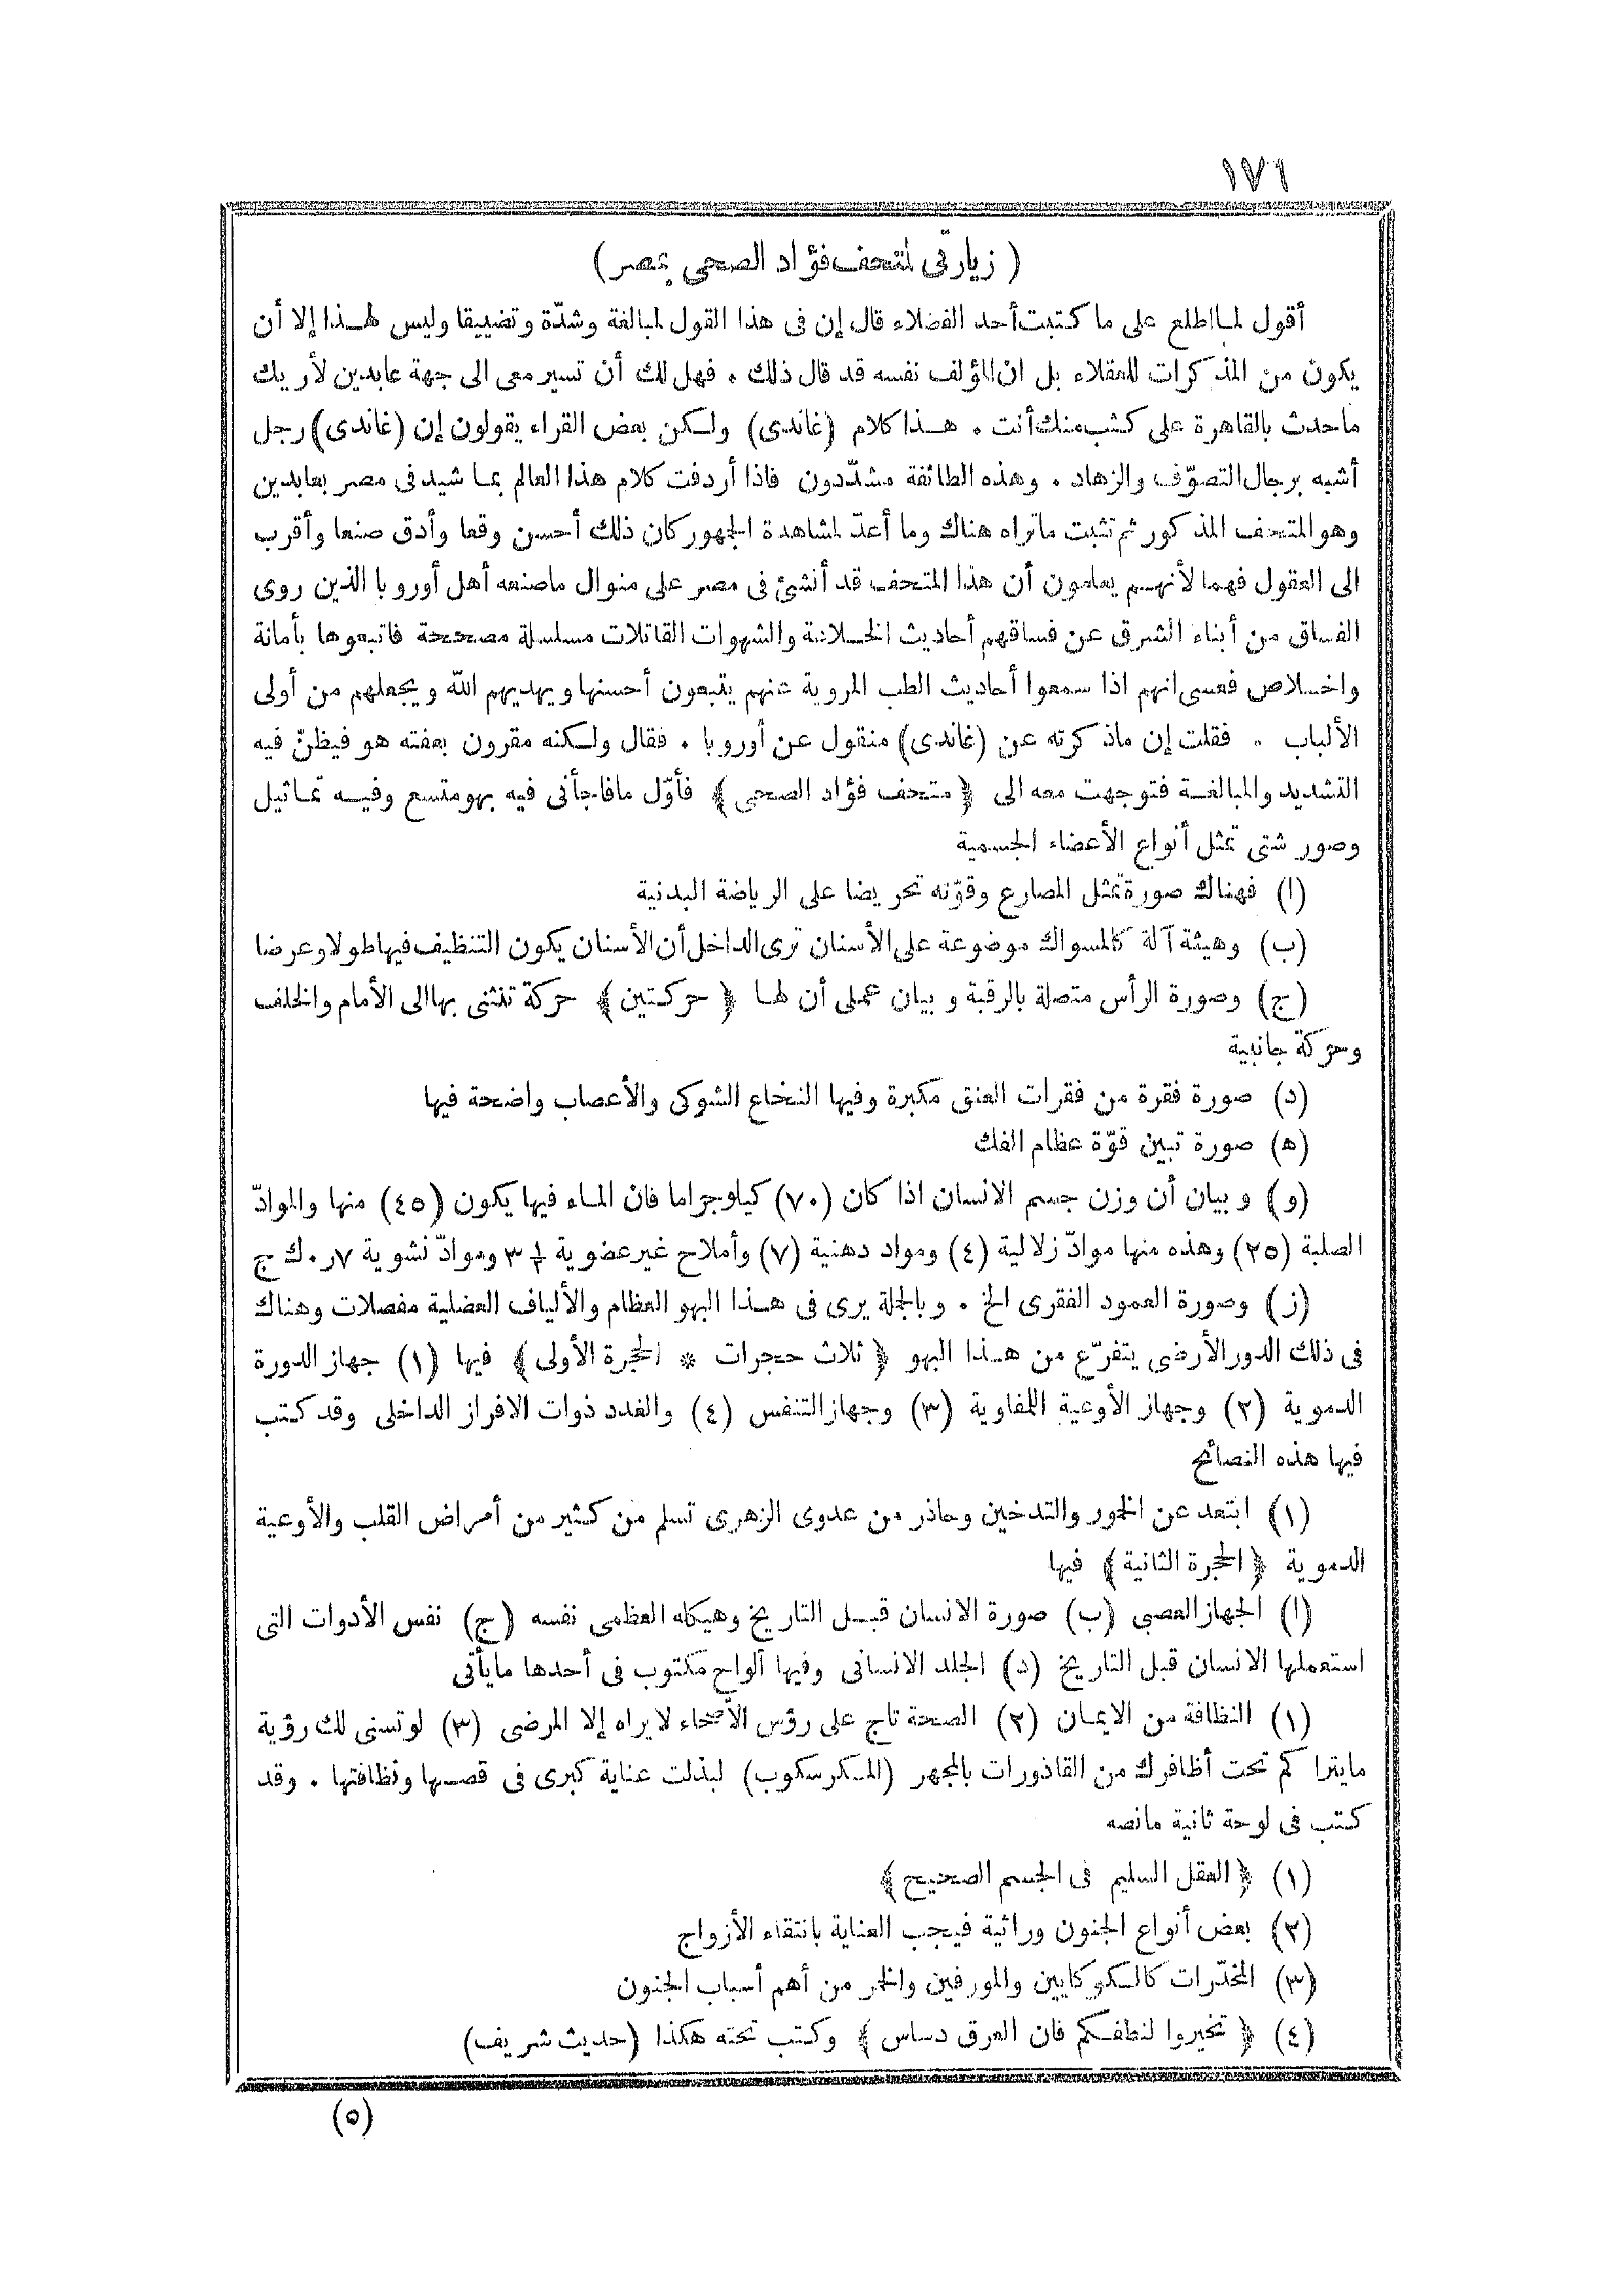 ١٧٦
( زيارتى لمتحف فؤاد الصحى بمصر )
أقول لما اطلع على ما كتبت أحد الفضلاء قال إن فى هذا القول لمبالغة وشدّة وتضييقا وليس لهذا إلا أن
يكون من المذكرات للعقلاء بل ان المؤلف نفسه قد قال ذلك . فهل لك أن تسير معى الى جهة عابدين لأريك
ماحدث بالقاهرة على كثب منك أنت . هذا كلام (غاندى) ولكن بعض القراء يقولون إن (غاندى) رجل
أشبه برجال التصوّف والزهاد . وهذه الطائفة مشدّدون فاذا أردفت كلام هذا العالم بما شيد فى مصر بعابدين
وهو المتحف المذكور ثم تثبت ماتراه هناك وما أعدّ لمشاهدة الجمهور كان ذلك أحسن وقعا وأدق صنعا وأقرب
الى العقول فهما لأنهم يعلمون أن هذا المتحف قد أنشئ فى مصر على منوال ماصنعه أهل أوروبا الذين روى
الفساق من أبناء الشرق عن فساقهم أحاديث الخلاعة والشهوات القاتلات مسلسلة مصححة فاتبعوها بأمانة
واخلاص فعسى انهم اذا سمعوا أحاديث الطب المروية عنهم يتبعون أحسنها ويهديهم الله ويجعلهم من أولى
الألباب . فقلت إن ماذكرته عن (غاندى) منقول عن أوروبا . فقال ولكنه مقرون بعفته هو فيظنّ فيه
التشديد والمبالغة فتوجهت معه الى ﴿ متحف فؤاد الصحى ﴾ فأوّل مافاجأنى فيه بهو متسع وفيه تماثيل
وصور شتى تمثل أنواع الأعضاء الجسمية
(ا) فهناك صورة تمثل المصارع وقوّته تحريضا على الرياضة البدنية
(ب) وهيئة آلة كالمسواك موضوعة على الأسنان ترى الداخل أن الأسنان يكون التنظيف فيها طولا وعرضا
(ج) وصورة الرأس متصلة بالرقبة وبيان عملى أن لها ﴿ حركتين ﴾ حركة تنثنى بها الى الأمام والخلف
وحركة جانبية
(د) صورة فقرة من فقرات العنق مكبرة وفيها النخاع الشوكى والأعصاب واضحة فيها
(ه) صورة تبين قوّة عظام الفك
(و) وبيان أن وزن جسم الانسان اذا كان (٧٠) كيلوجراما فان الماء فيها يكون (٤٥) منها والموادّ
الصلبة (٢٥) وهذه منها موادّ زلالية (٤) ومواد دهنية (٧) وأملاح غير عضوية ٣ وموادّ نشوية ٧ر٠ ك ج
(ز) وصورة العمود الفقرى الخ . وبالجملة يرى فى هذا البهو العظام والألياف العضلية مفصلات وهناك
فى ذلك الدور الأرضى يتفرّع من هذا البهو ﴿ ثلاث حجرات * الحجرة الأولى ﴾ فيها (١) جهاز الدورة
الدموية (٢) وجهاز الأوعية اللمفاوية (٣) وجهاز التنفس (٤) والغدد ذوات الافراز الداخلى وقد كتب
فيها هذه النصائح
(١) ابتعد عن الخمور والتدخين وحاذر من عدوى الزهرى تسلم من كثير من أمراض القلب والأوعية
الدموية ﴿ الحجرة الثانية ﴾ فيها
(ا) الجهاز العصبى (ب) صورة الانسان قبل التاريخ وهيكله العظمى نفسه (ج) نفس الأدوات التى
استعملها الانسان قبل التاريخ (د) الجلد الانسانى وفيها ألواح مكتوب فى أحدها مايأتى
(١) النظافة من الايمان (٢) الصحة تاج على رؤس الأصحاء لايراه إلا المرضى (٣) لو تسنى لك رؤية
مايتراكم تحت أظافرك من القاذورات بالمجهر (المكرسكوب) لبذلت عناية كبرى فى قصها ونظافتها . وقد
كتب فى لوحة ثانية مانصه
(١) ﴿ العقل السليم فى الجسم الصحيح ﴾
(٢) بعض أنواع الجنون وراثية فيجب العناية بانتقاء الأزواج
(٣) المخدّرات كالكوكايين والمورفين والخمر من أهم أسباب الجنون
(٤) ﴿ تخيروا لنطفكم فان العرق دساس ﴾ وكتب تحته هكذا (حديث شريف)
(٥)